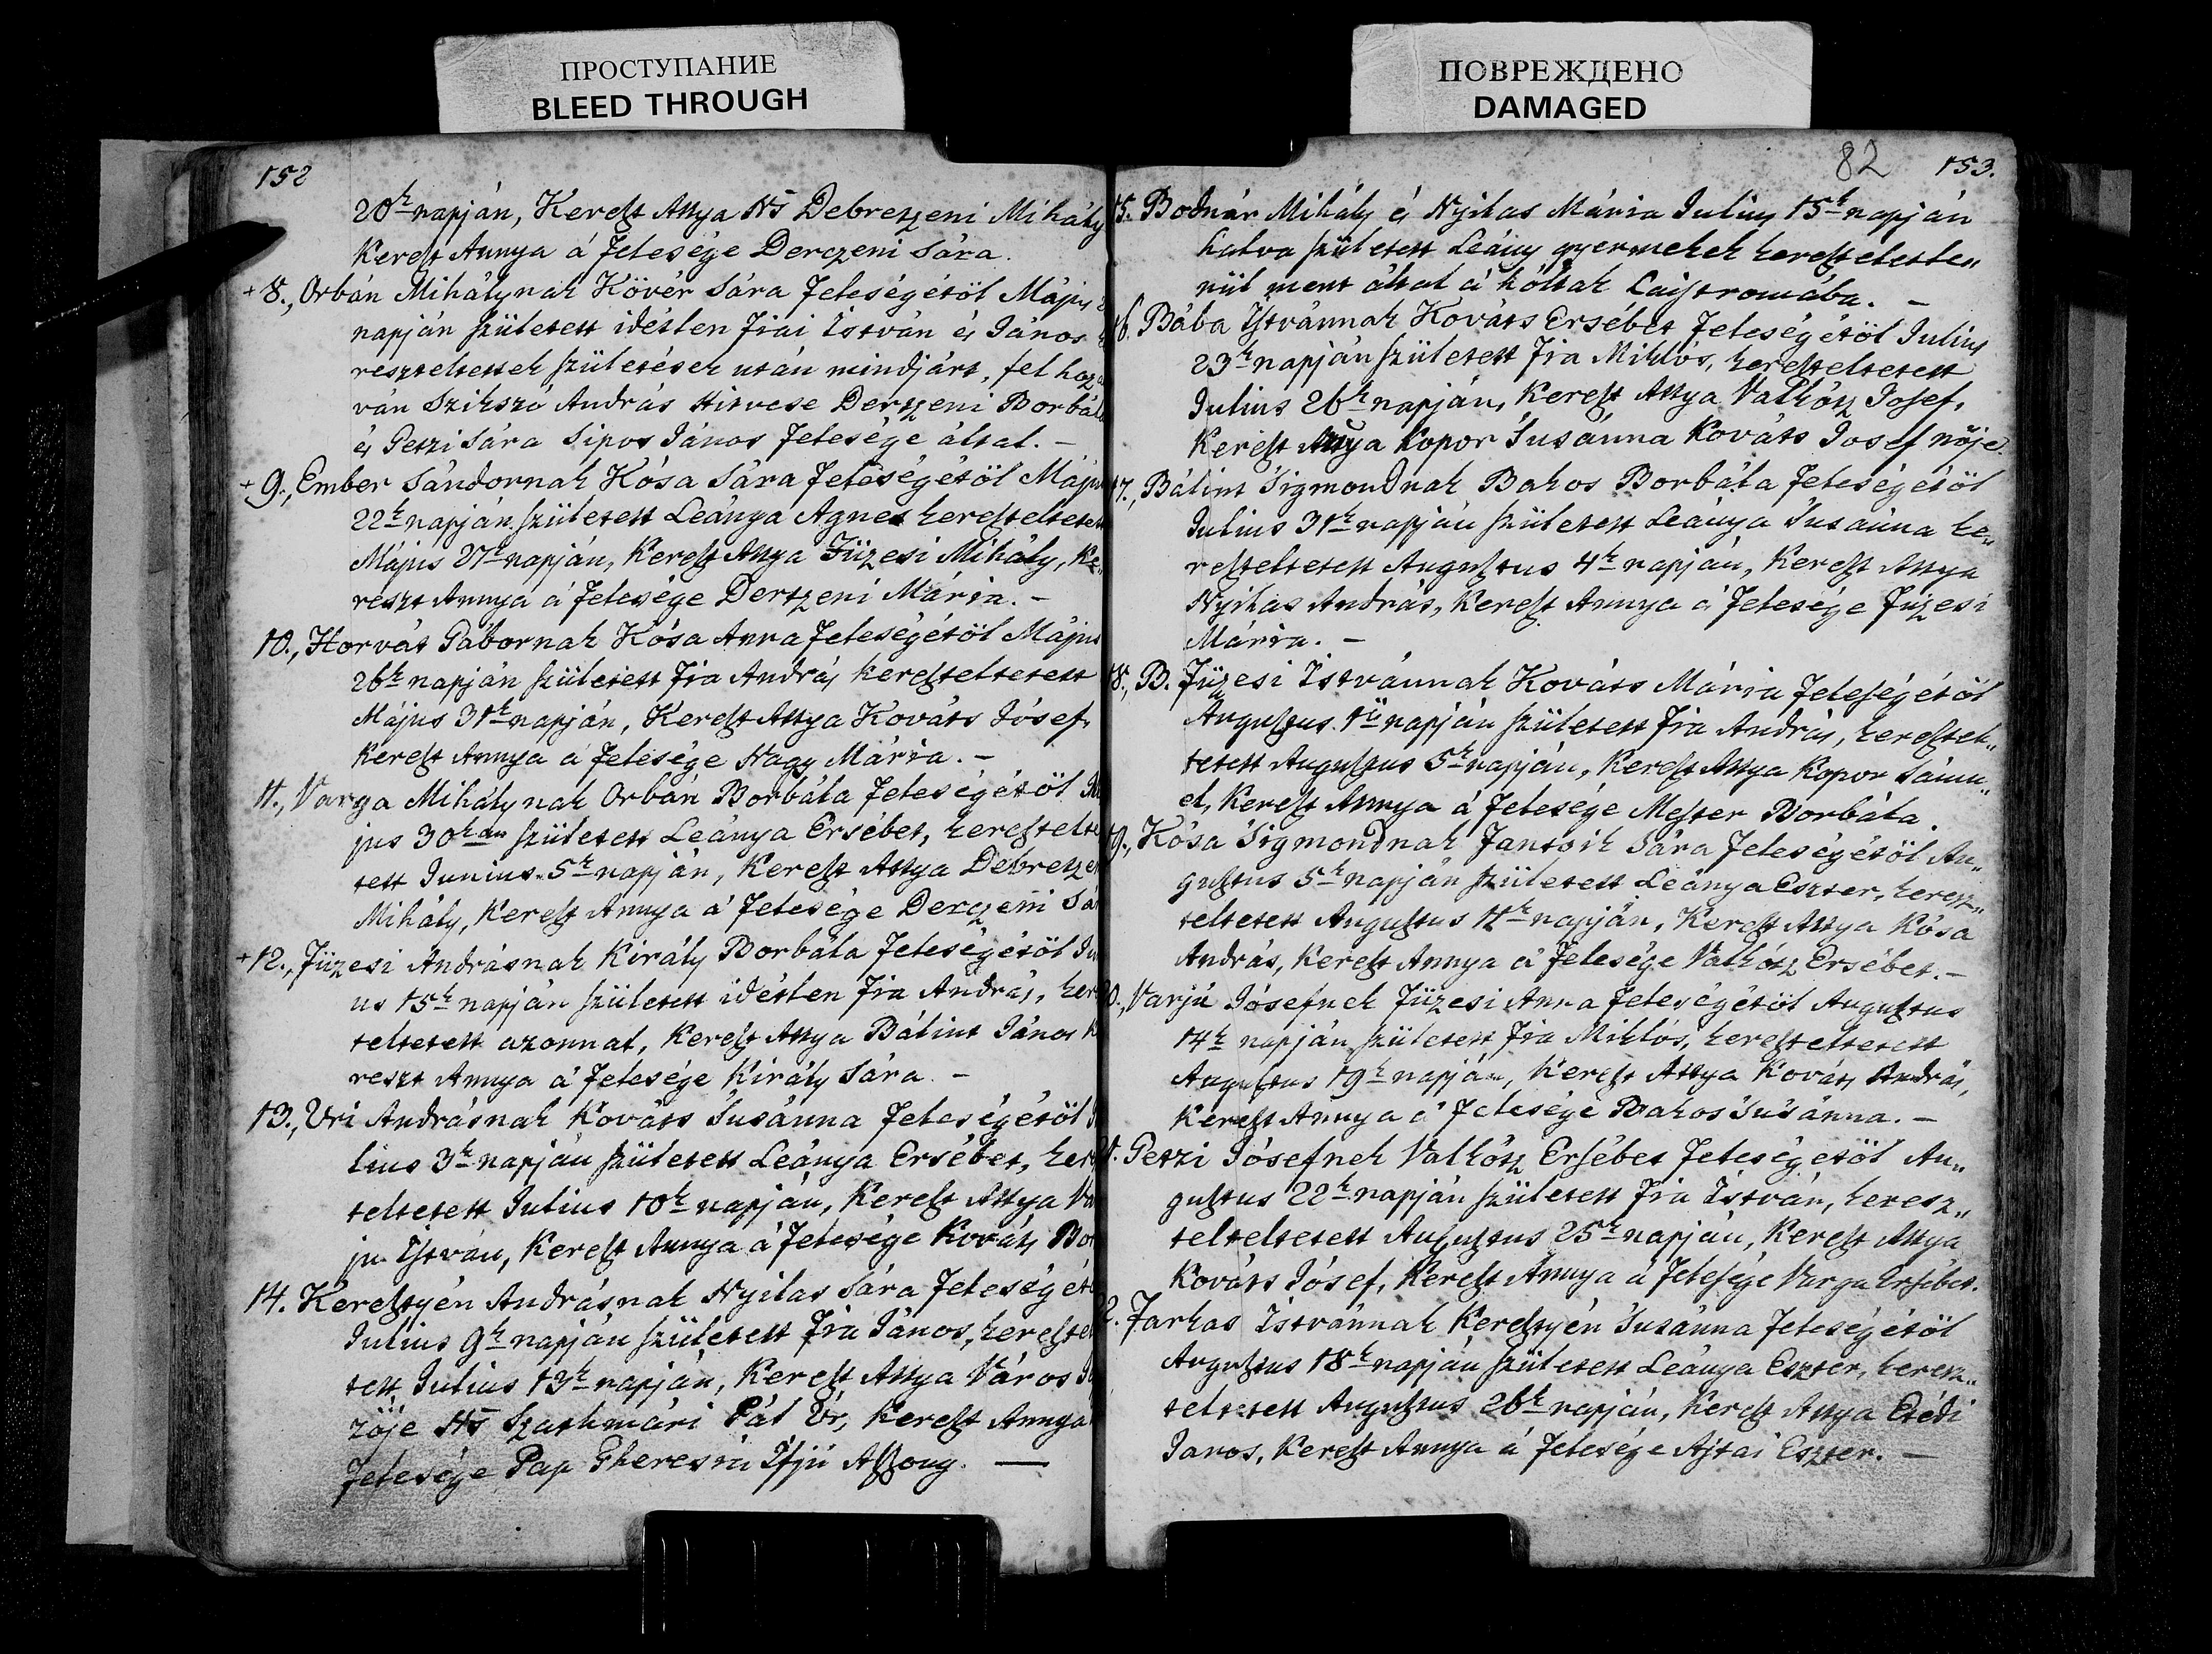 ПРОСТУПАНИЕ
BLEED THROUGH
ПОВРЕЖДЕНО
DAMAGED
152
20k napján, Kereszt Attya Ns Debretzeni Mihály
Kereszt Annya á felesége Derczeni Sára.
+8., Orbán Mihálynak Kövér Sára feleségétöl Május
napján született idétlen fiai István és János
reszteltettek születések után mindjárt, fel hoz
ván Szikszó András Hitvese Dertzeni Borbála
és Petzi Sára Sipos János felesége által. –
+9., Ember Sándornak Kósa Sára feleségétöl Május
22k napján született Leánya Agnes kereszteltetett
Május 27k napján, Kereszt Attya Füzesi Mihály, Ke„
reszt Annya á felesége Dertzeni Mária. –
10., Horvát Gábornak Kósa Anna feleségétöl Május
26k napján született fia András kereszteltetett
Május 31k napján, Kereszt Attya Kováts Jósef,
Kereszt Annya á felesége Nagy Mária. –
11., Varga Mihálynak Orbán Borbála feleségétöl
jus 30kán született Leánya Ersébet, keresztelte
tett Junius 5k napján, Kereszt Attya Debretze
Mihály, Kereszt Annya á felesége Derczeni Sá
+12., Füzesi Andrásnak Király Borbála feleségétöl
us 15k napján született idétlen fia András, ker
teltetett azonnal, Kereszt Attya Bálint János
reszt Annya á felesége Király Sára. –
13., Uri Andrásnak Kováts Susánna feleségétöl
lius 3k napján született Leánya Ersébet, ker
teltetett Julius 10k napján, Kereszt Attya Va
ju István, Kereszt Annya á felesége Kováts Bor
14. Keresztyén Andrásnak Nyilas Sára feleségét
Julius 9k napján született fia János, keresztel
tett Julius 13k napján, Kereszt Attya Város
zöje Ns Szathmári Pál Ur, Kereszt Annya
felesége Pap Theresia Ifjú Aszony. —
82 153.
15. Bodnár Mihály és Nyilas Mária Julius 15k napján
halva született Leány gyermekek keresztetetle„
nül ment által á hóltak Laistromába. –
16. Bába Istvánnak Kováts Ersébet feleségétöl Julius
23k napján született fia Miklós, kereszteltetett
Julius 26k napján, Kereszt Attya Valkósz Josef,
Kereszt Annya Kopor Susánna Kováts Josef nöje.
17., Bálint Sigmondnak Bakos Borbála feleségétöl
Julius 31k napján született Leánya Susánna ke„
reszteltetett Augusztus 4k napján, Kereszt Attya
Nyikas András, Kereszt Annya á felesége Füzesi
Mária. –
18., B. Füzesi Istvánnak Kováts Mária feleségétöl
Augusztus 1ö napján született fia András, keresztel„
tetett Augusztus 5k napján, Kereszt Attya Kopor Sámu„
el, Kereszt Annya á felesége Mester Borbála.
19., Kósa Sigmondnak Jantsik Sára feleségétöl Au„
gusztus 5k napján született Leánya Eszter, keresz„
teltetett Augusztus 11k napján, Kereszt Attya Kósa
András, Kereszt Annya á felesége Valkósz Ersébet. –
0., Varjú Jósefnek Füzesi Anna feleségétöl Augusztus
14k napján született fia Miklós, kereszteltetett
Augusztus 19k napján, Kereszt Attya Kováts András,
Kereszt Annya á felesége Bakos Susánna. –
1. Petzi Jósefnek Valkósz Ersébet feleségétöl Au„
gusztus 22k napján született fia István, keresz„
telteltetett Auusztus 25k napján, Kereszt Attya
Kováts Jósef, Kereszt Annya á felesége Varga Ersébet.
2. Farkas Istvánnak Keresztyén Susánna feleségétöl
Augusztus 18k napján született Leánya Eszter, keresz„
teltetett Augusztus 26k napján, Kereszt Attya Etédi
Janos, Kereszt Annya á felesége Ajtai Eszter. –